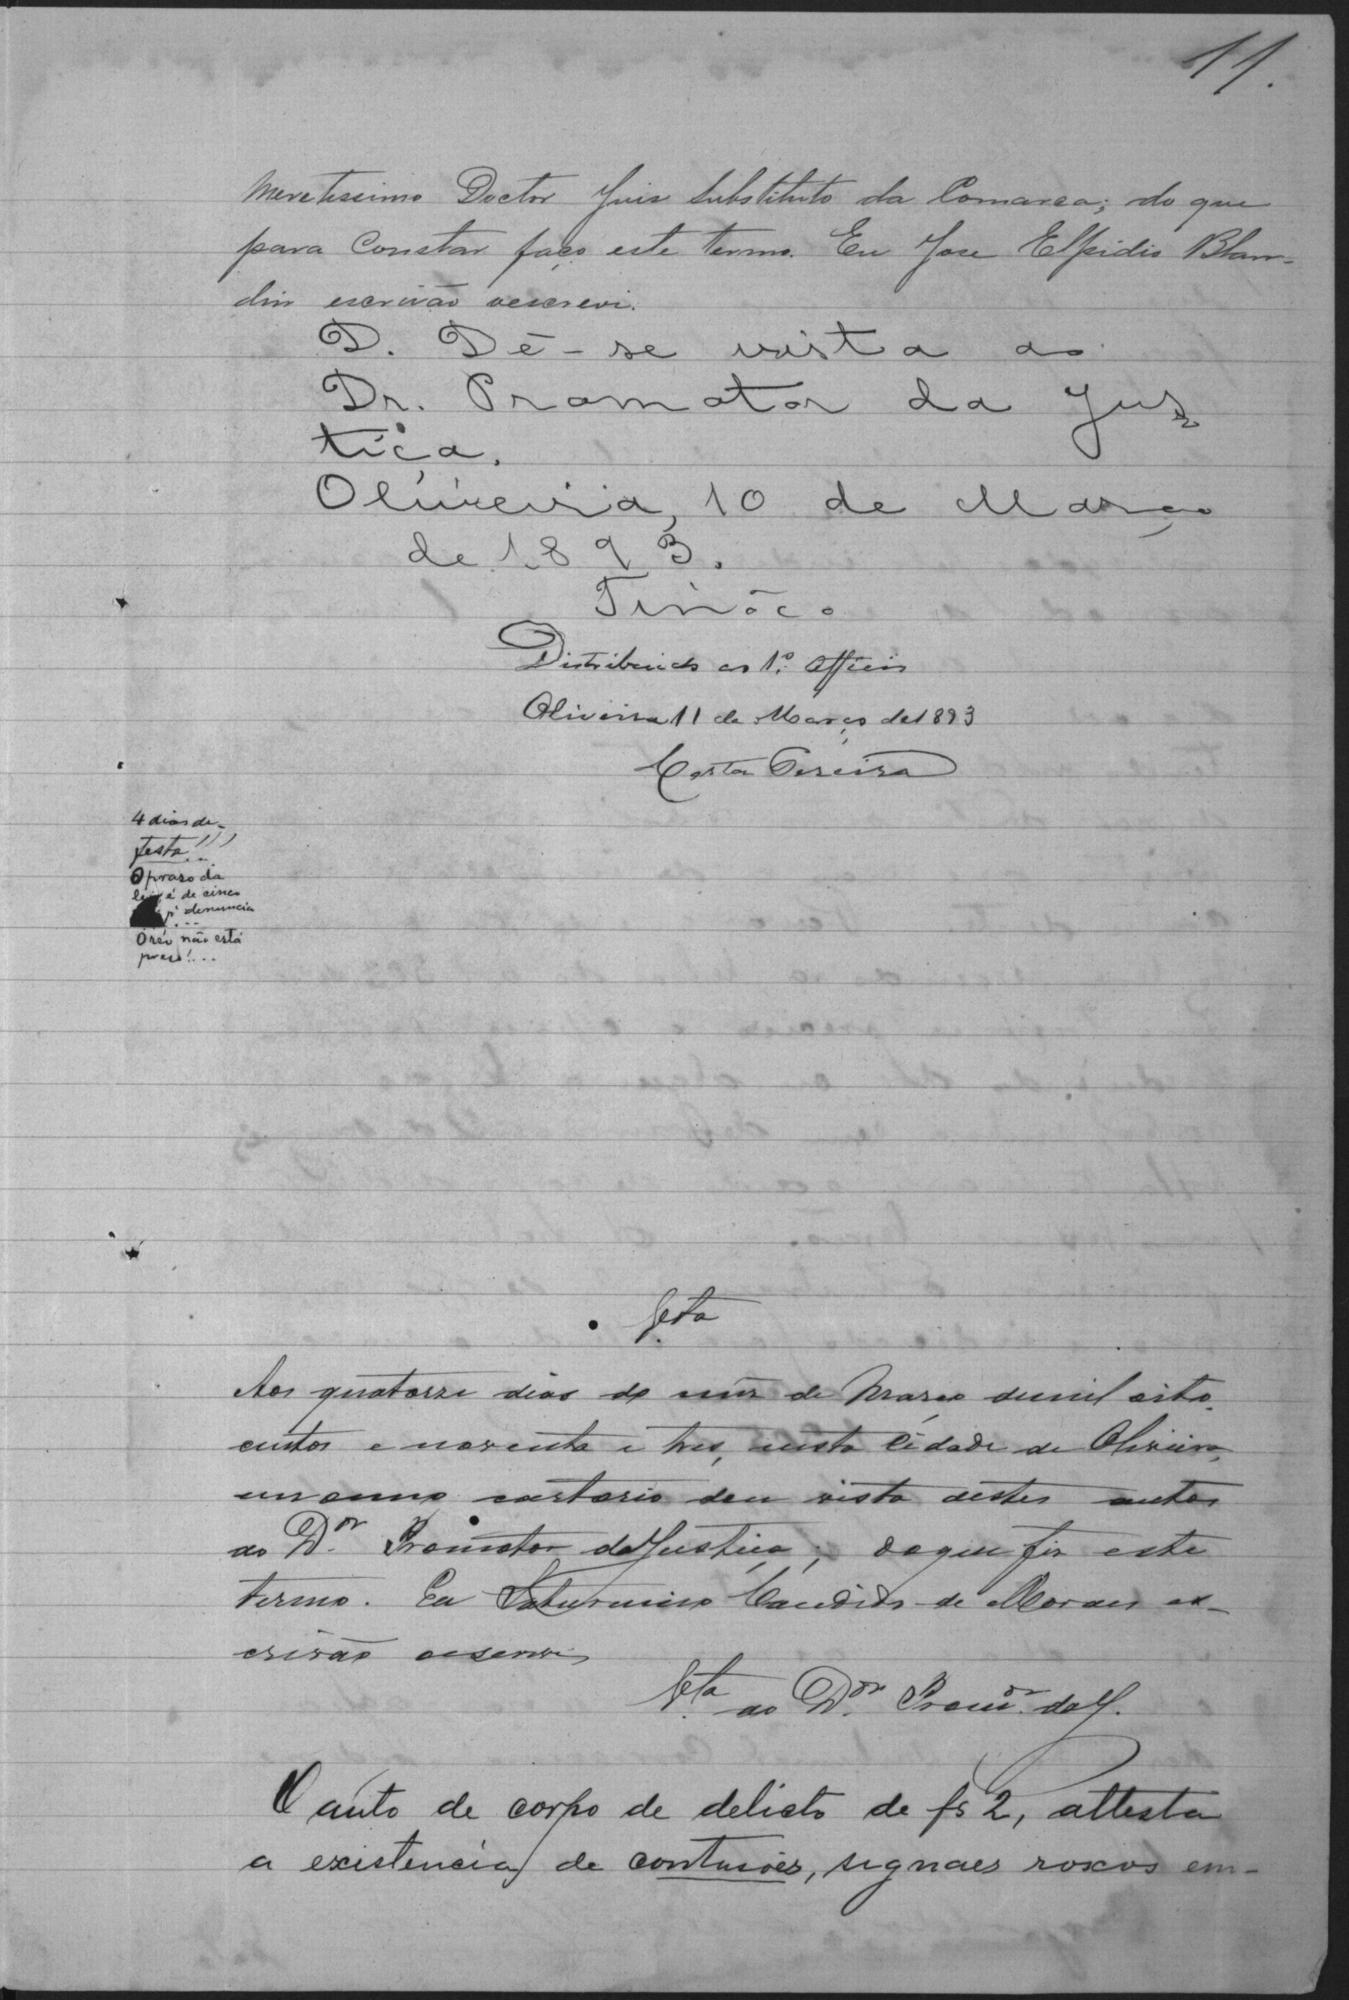 11.
Meretissimo Doctor Juis Substituto da Comarca; do que
para Constar faço este termo. Eu Jose Elpidio Blan-
din escrivão oescrevi.
D. Dê-se vista ao
Dr. Promotor da Jus
tiça.
Oliveira, 10 de Março
de 1893.
Tinôco
Distribuido ao 1º. Officio
Oliveira 11 de Março de 1893
Costa Pereira
4 dias de
festa!!!...
O praso da
lei é de cinco
pª denuncia
....
O réo não está
preso!...
Vta
Aos quatorze dias do mez de Março demil oito
centos e noventa e tres, nesta Cidade de Oliveira,
em cartorio dou vista destes autos
ao Dor. Promotor da Justiça; doque fiz este
termo. Eu Saturnino Candido de Moraes es-
crivão oescrevi
Vta ao Dor. Promor. da J.
O auto de corpo de delicto de fs 2, attesta
a existencia de contusões, signaes roxos em-